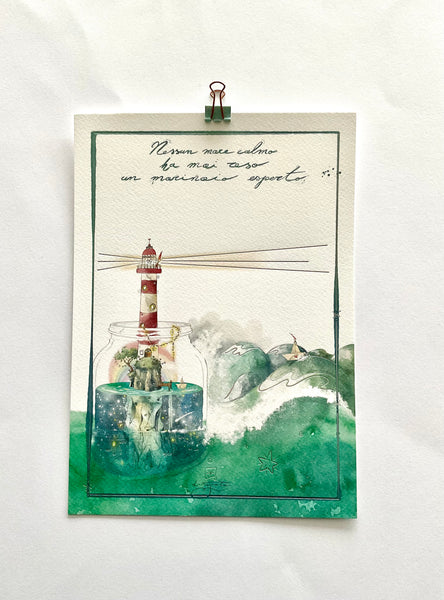 Nessun mare calmo
ha mai reso
un marinaio esperto